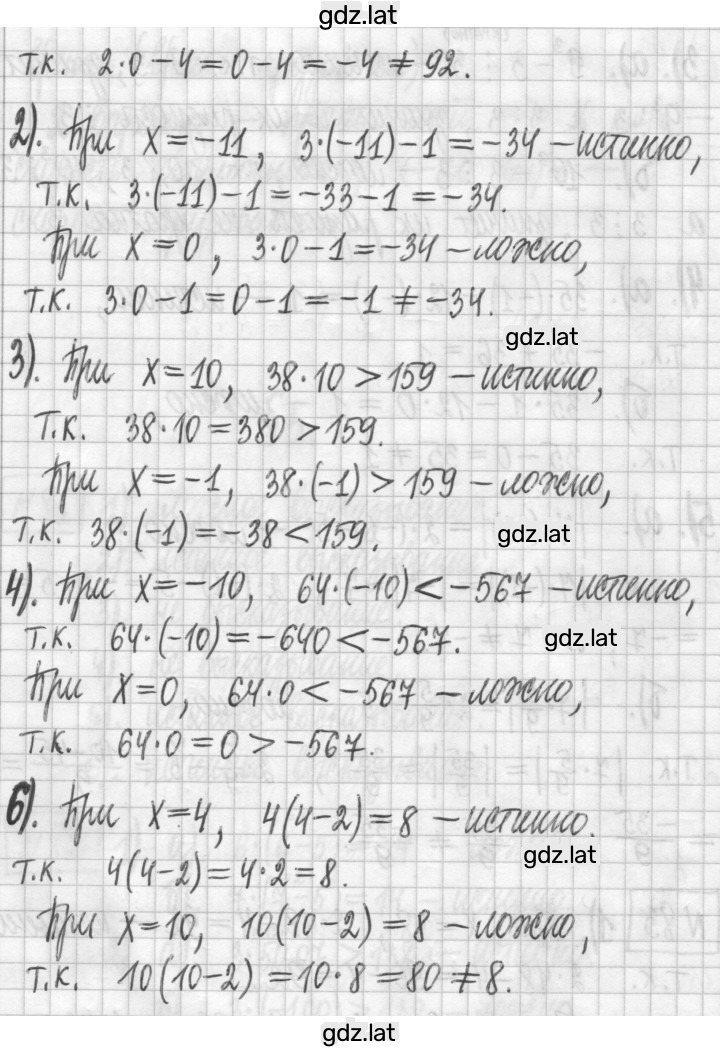 gdz.lat
т.к. 2·0-4=0-4=-4≠92.
2). При x=-11, 3·(-11)-1=-34-истинно,
т.к. 3·(-11)-1=-33-1=-34.
При x=0, 3·0-1=-34-ложно,
т.к. 3·0-1=0-1=-1≠-34.
gdz.lat
3). При x=10, 38·10>159-истинно,
т.к. 38·10=380>159.
При x=-1, 38·(-1)>159-ложно,
т.к. 38·(-1)=-38<159.
gdz.lat
4). При x=-10, 64·(-10)<-567-истинно,
т.к. 64·(-10)=-640<-567.
gdz.lat
При x=0, 64·0<-567-ложно,
т.к. 64·0=0>-567.
6). При x=4, 4(4-2)=8-истинно.
gdz.lat
т.к. 4(4-2)=4·2=8.
При x=10, 10(10-2)=8-ложно,
т.к. 10(10-2)=10·8=80≠8.
gdz.lat